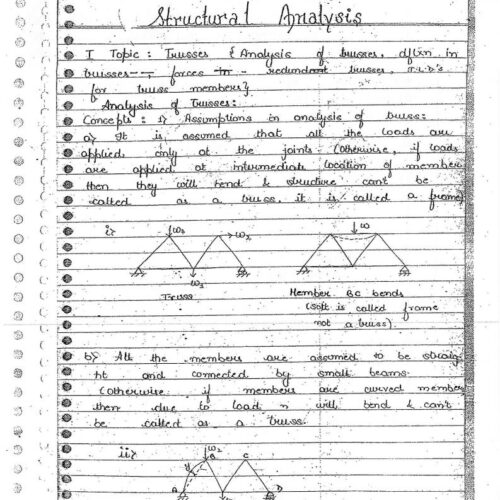 Structural Analysis
I Topic : Trusses { Analysis of trusses, dflxn in
trusses - forces in - redundant trusses, I.L.D's
for truss members}
Analysis of Trusses:
Concepts : 1) Assumptions in analysis of truss:
a) It is assumed that all the loads are
applied only at the joints. (Otherwise, if loads
are applied at intermediate location of member
then they will bend & structure cant be
called as a truss. it is called a frame)
i)
W1
W2
W
W3
Truss
Member BC bends
(soit is called frame
not a truss).
b) All the members are assumed to be straig
ht and connected by small beams.
(otherwise if members are curved member
then due to load n will bend & cant
be called as a truss.
ii)
W2
B
C
y
A
D